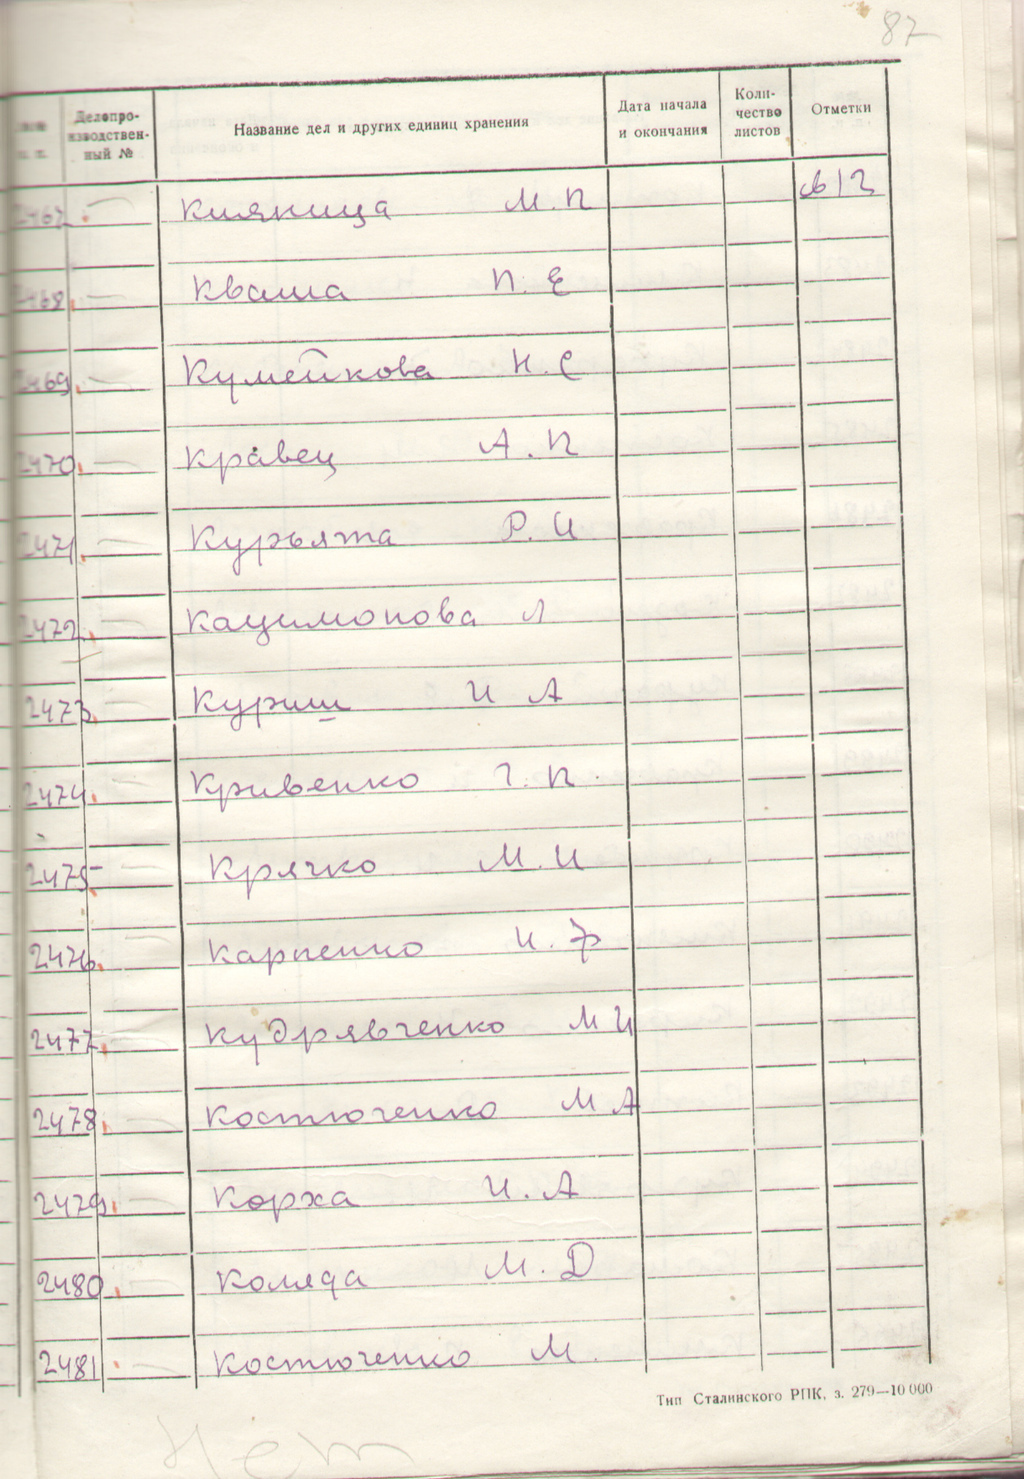 87
Делопро-
изводствен-
ный №
Название дел и других единиц хранения
Дата начала
и окончания
Коли-
чество
листов
Отметки
2467 — Кияница М. П
2468 — Кваша П. Е
2469 — Кумейкова Н. С
2470 — Кравец А. П
2471 — Курьята Р. И
2472 — Кацимонова Л
2473 — Куриш И А
2474 — Кривенко Г. П.
2475 — Крячко М. И
2476 — Карпенко И. Ф
2477 — Кудрявченко М И
2478 — Костюченко М А
2479 — Корха И. А
2480 — Коляда М. Д
2481 — Костюченко М.
Тип Сталинского РПК, з. 279—10 000
Нет